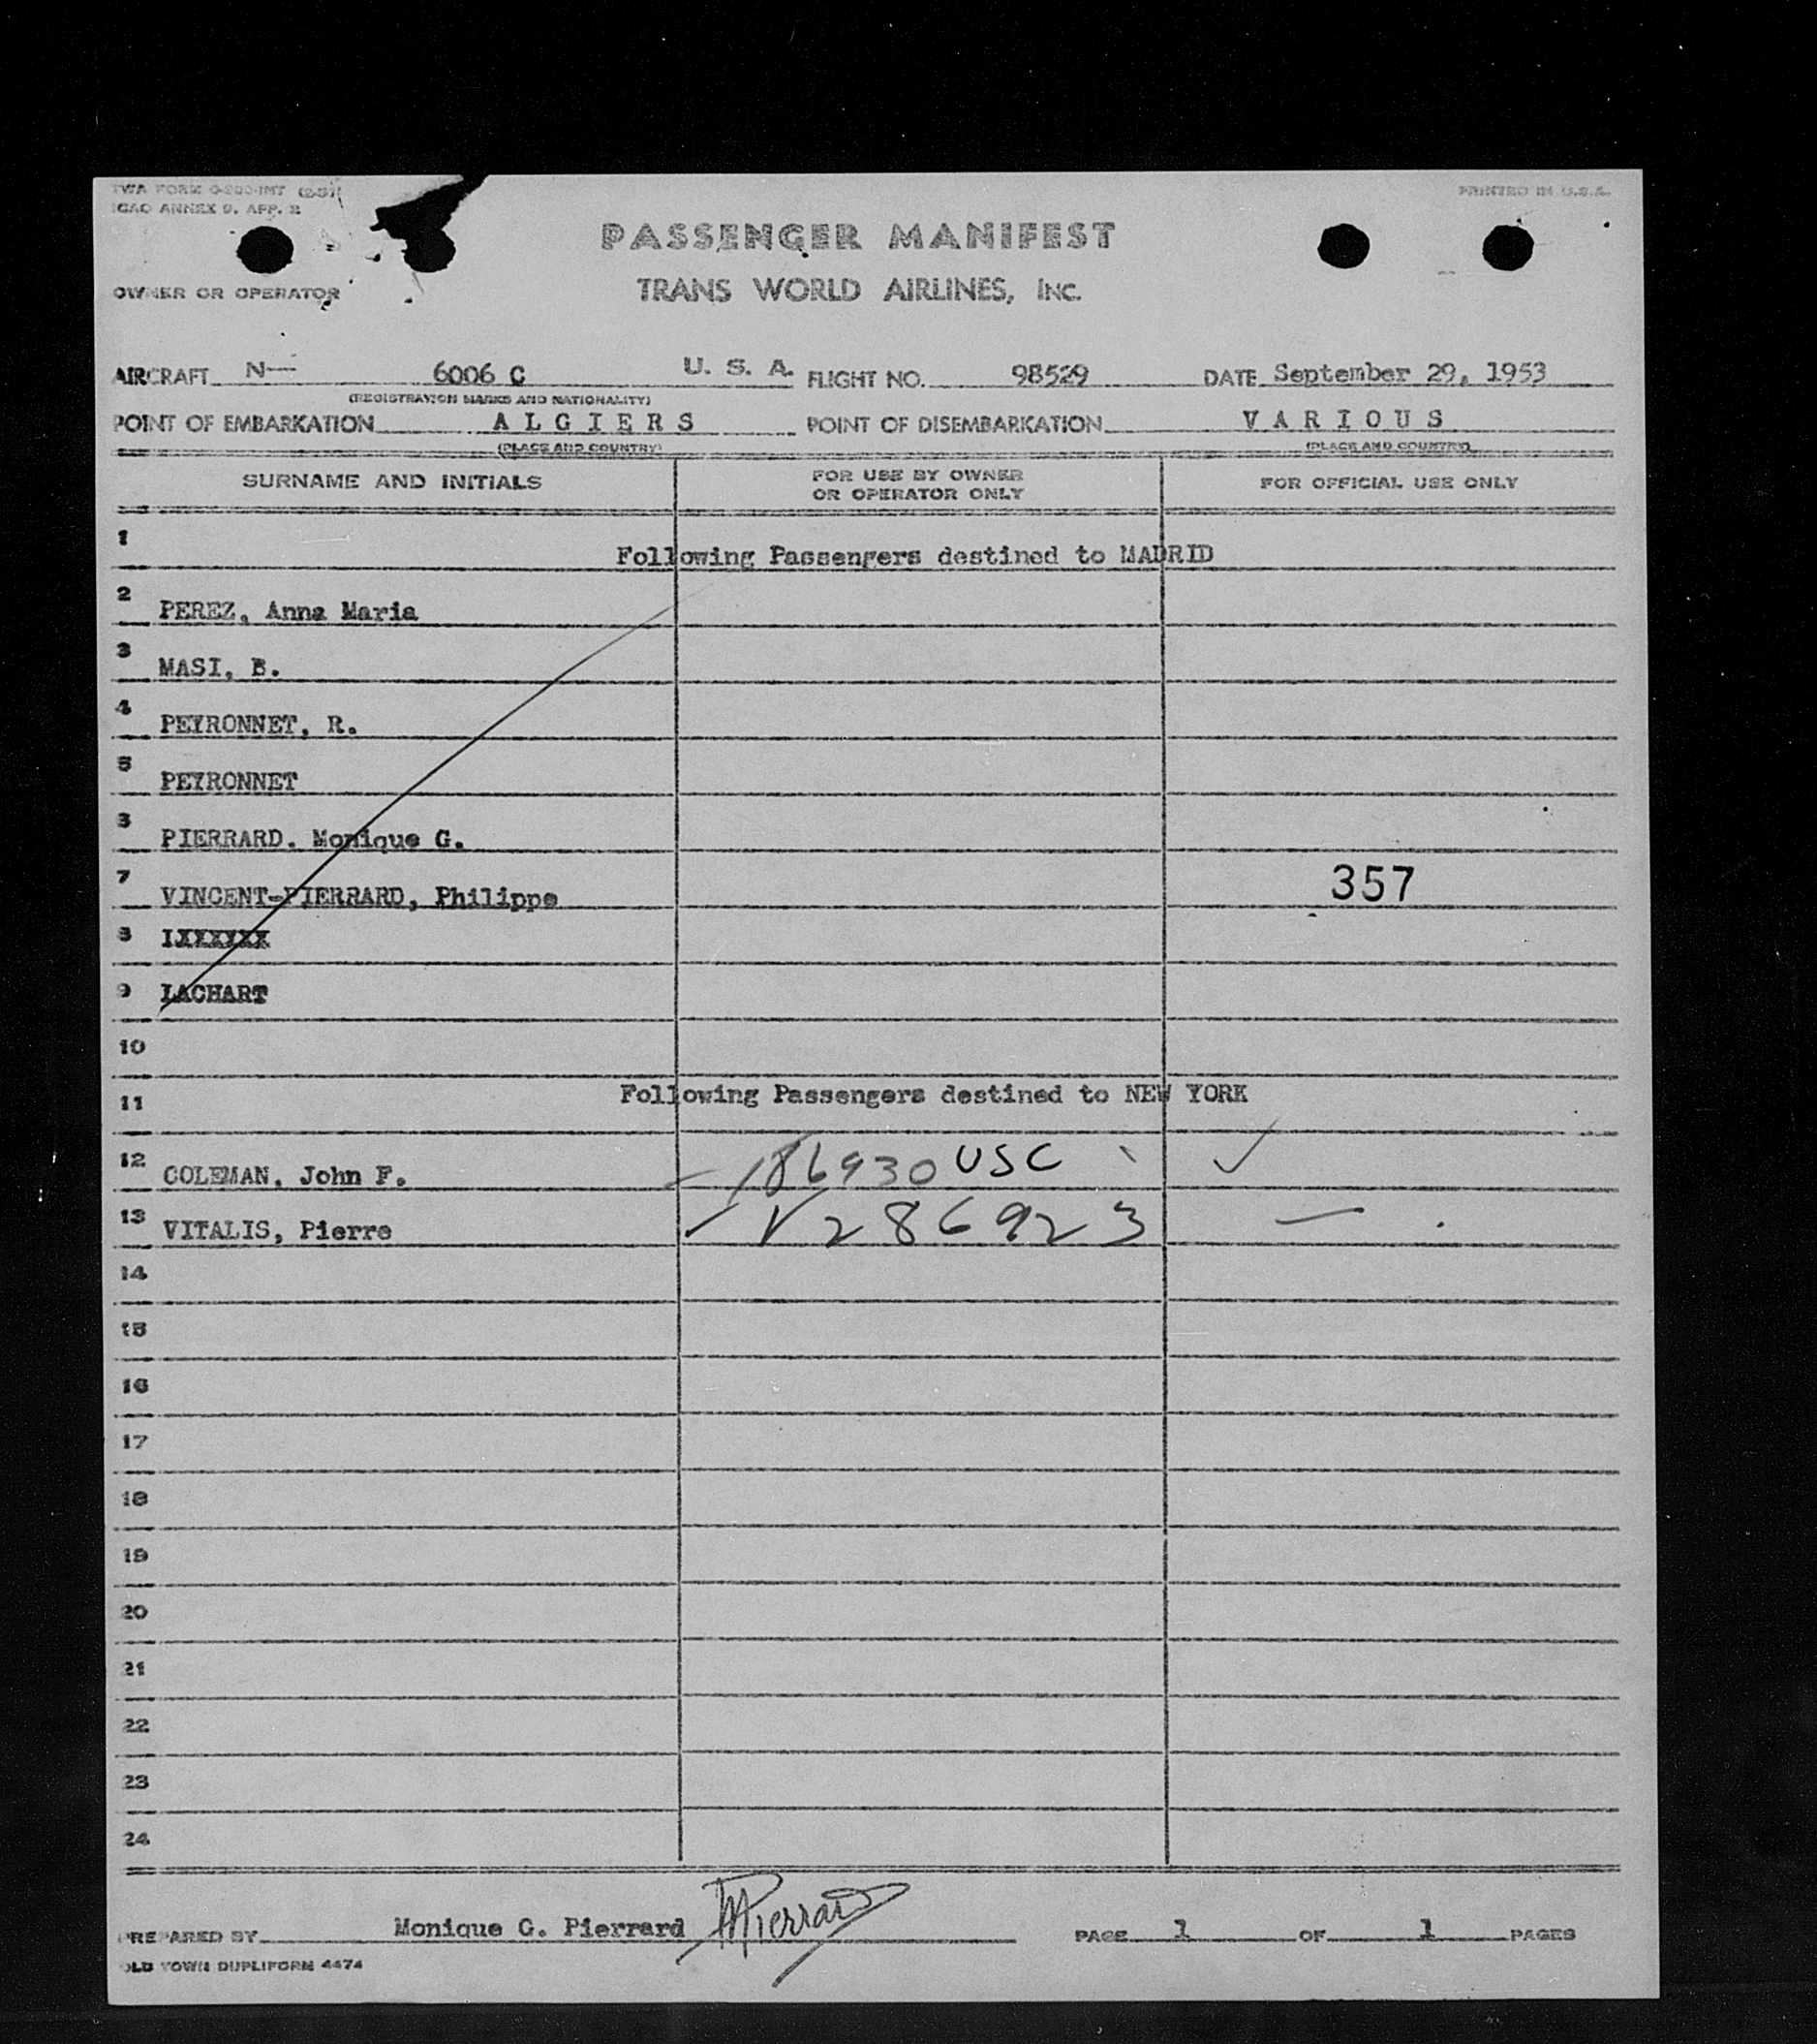 TWA FORM
ICAO ANNEX 9. APP. 2
PRINTED IN U.S.A.
PASSENGER MANIFEST
OWNER OR OPERATOR
TRANS WORLD AIRLINES, INC.
AIRCRAFT N— 6006 C U. S. A. FLIGHT NO. 98529 DATE September 29, 1953
(REGISTRATION MARKS AND NATIONALITY)
POINT OF EMBARKATION A L G I E R S POINT OF DISEMBARKATION V A R I O U S
(PLACE AND COUNTRY) (PLACE AND COUNTRY)
SURNAME AND INITIALS FOR USE BY OWNER OR OPERATOR ONLY FOR OFFICIAL USE ONLY
1 Following Passengers destined to MADRID
2 PEREZ, Anna Maria
3 MASI, B.
4 PEYRONNET, R.
5 PEYRONNET
6 PIERRARD. Monique G.
7 VINCENT-PIERRARD, Philippe 357
8
9 LACHART
10
11 Following Passengers destined to NEW YORK
12 COLEMAN, John F. 186930 USC ✓
13 VITALIS, Pierre V286923 —
14
15
16
17
18
19
20
21
22
23
24
PREPARED BY Monique G. Pierrard MPierrard PAGE 1 OF 1 PAGES
OLD TOWN DUPLIFORM 4474